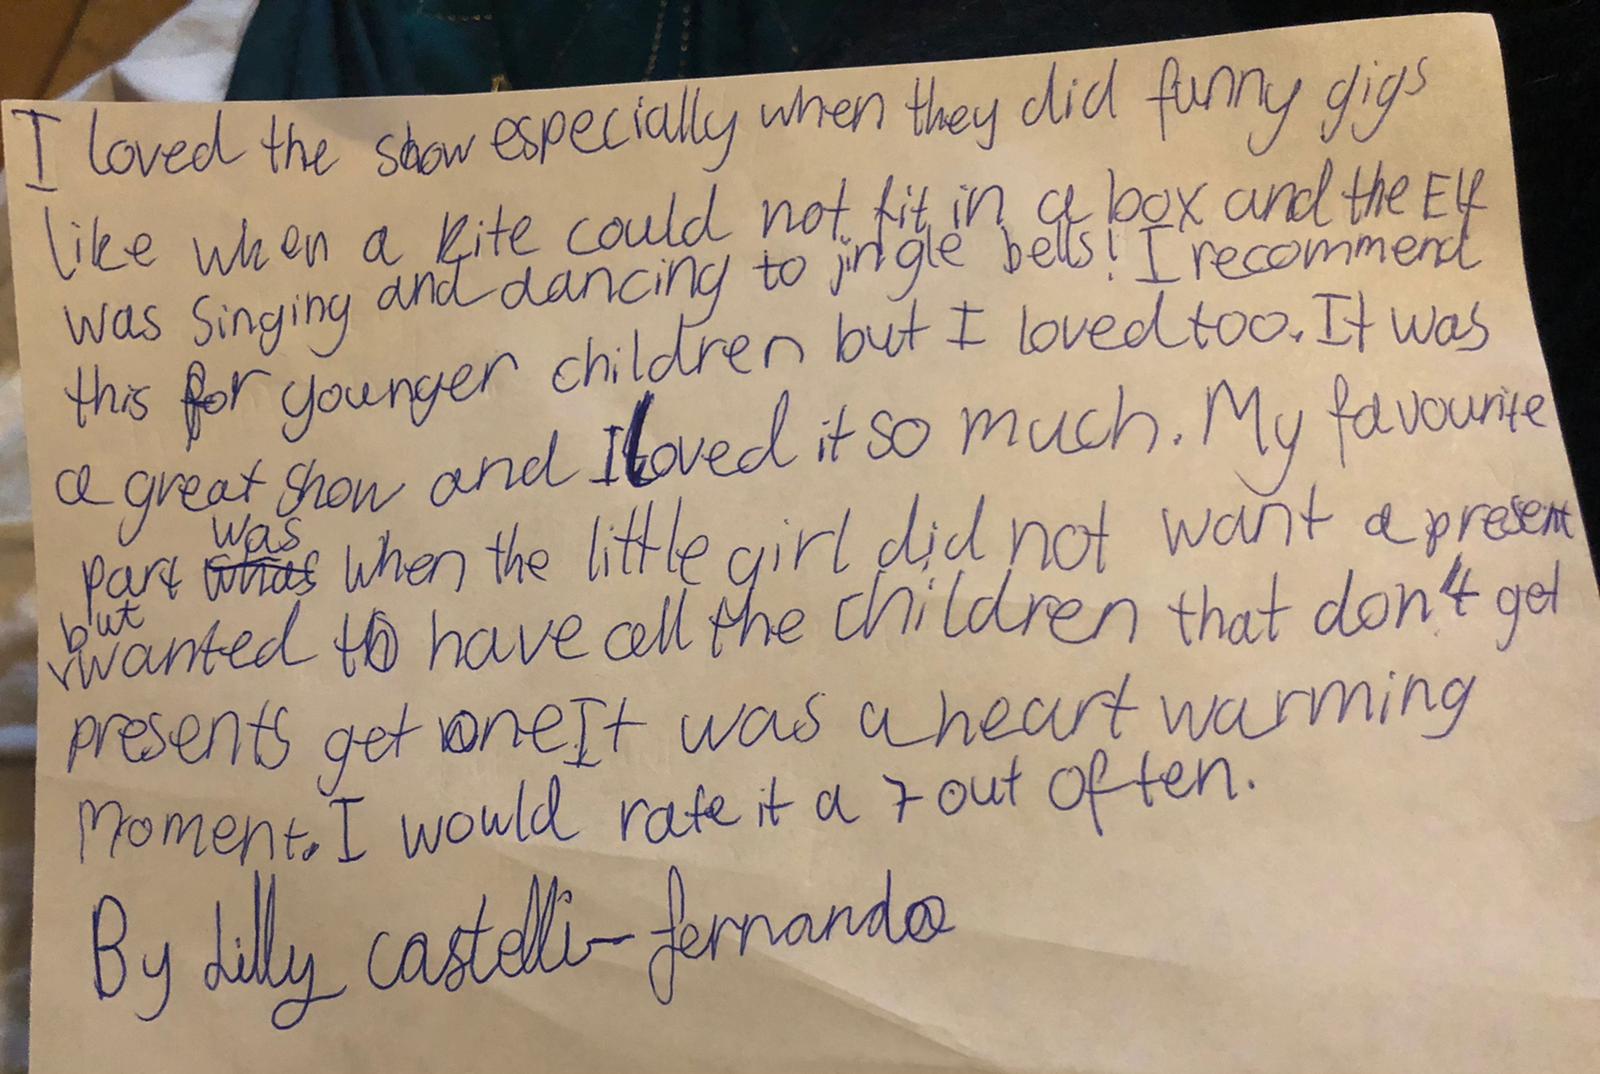 I loved the show especially when they did funny gigs
like when a kite could not fit in a box and the Elf
was singing and dancing to jingle bells! I recommend
this for younger children but I loved too. It was
a great show and I loved it so much. My favourite
was
part whas when the little girl did not want a present
but
wanted to have all the children that don't get
presents get one It was a heart warming
Moment. I would rate it a 7 out of ten.
By Lilly castelli-fernando